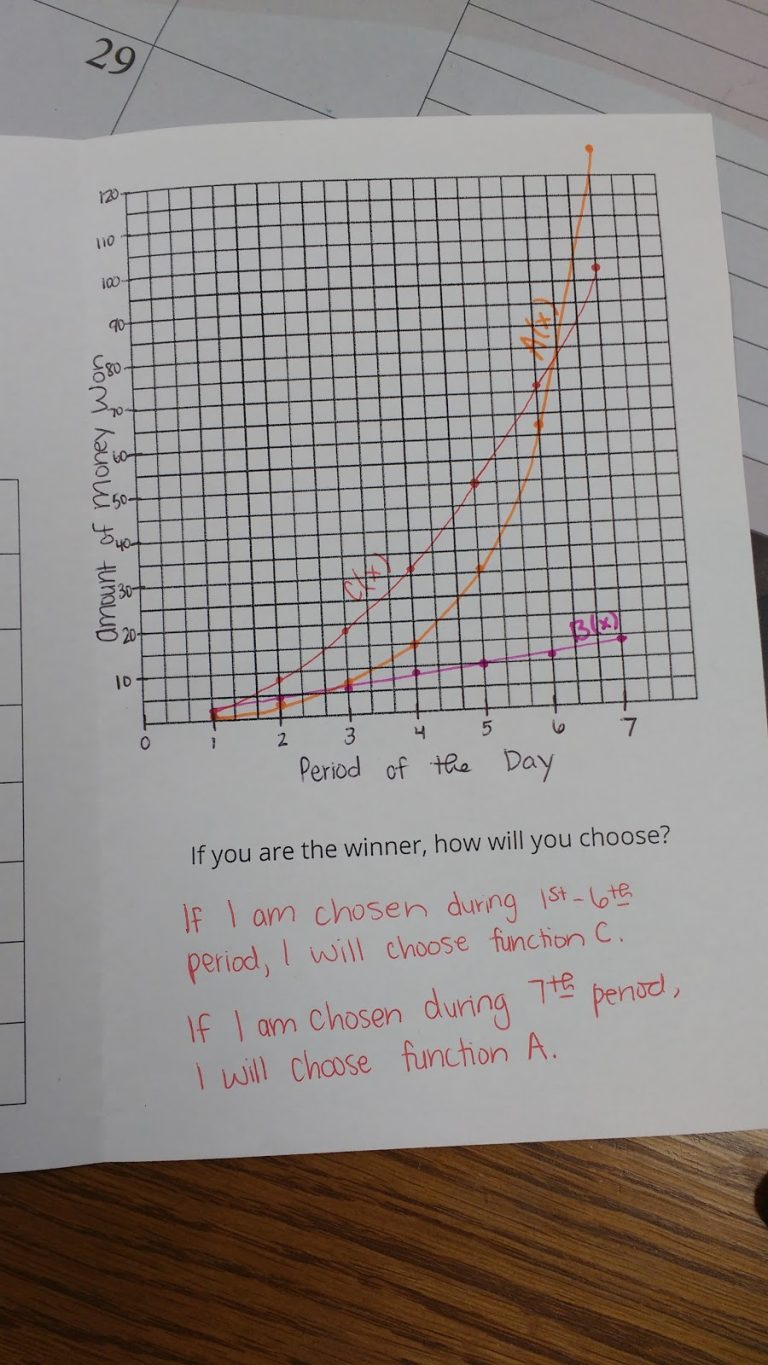 29
120
110
100
90
80
70
60
50
40
30
20
10
Amount of Money Won
A(x)
C(x)
B(x)
0 1 2 3 4 5 6 7
Period of the Day
If you are the winner, how will you choose?
If I am chosen during 1st - 6th
period, I will choose function C.
If I am chosen during 7th period,
I will choose function A.